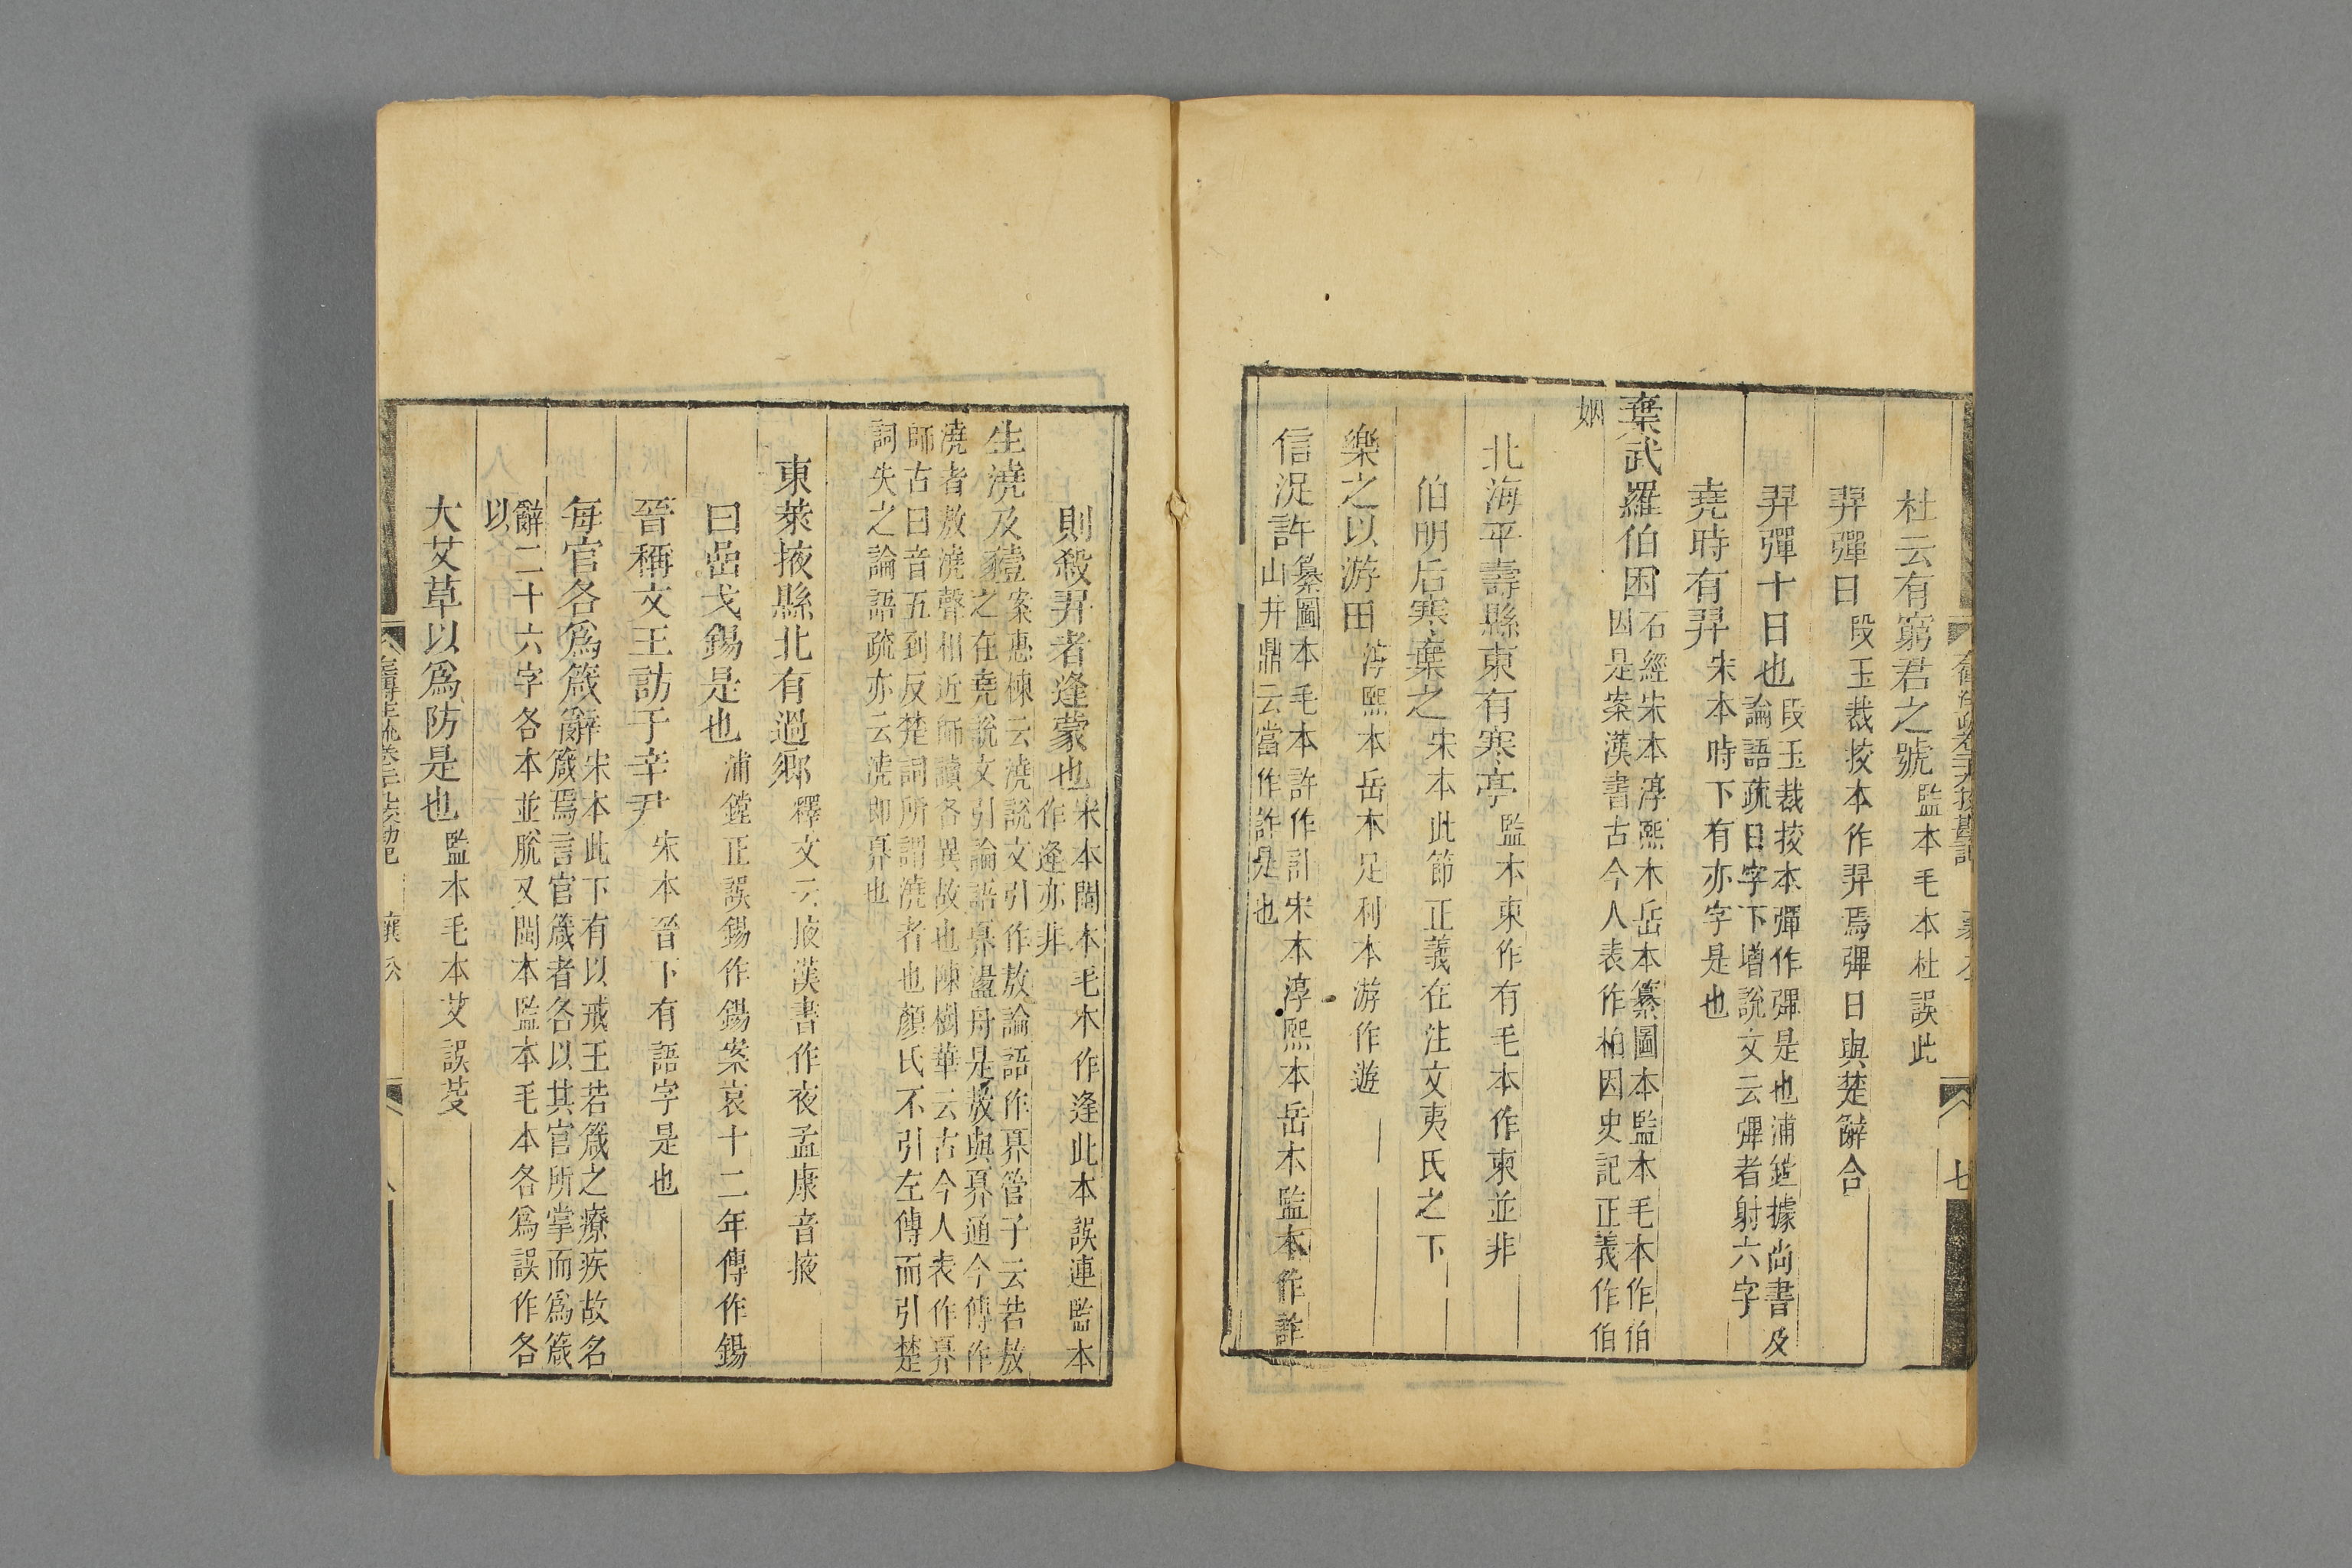 杜云有窮君之號監本毛本杜誤此
羿彃日段玉裁挍本作羿焉彃日與楚辭合
羿彈十日也段玉裁挍本彈作彃是也浦鏜據尚書及論語疏日字下增說文云彃者射六字
堯時有羿宋本時下有亦字是也
棄武羅伯困石經宋本淳熙本岳本纂圖本監本毛本作伯因是案漢書古今人表作柏因史記正義作伯
姻
北海平壽縣東有寒亭監本東作有毛本作東並非
伯明后寒棄之宋本此節正義在注文夷氏之下
樂之以游田淳熙本岳本足利本游作遊
信浞許纂圖本毛本許作計宋本淳熙本岳本監本作詐山井鼎云當作詐是也
七
則殺羿者逢蒙也宋本閩本毛本作逢此本誤連監本作逄亦非
生澆及豷案惠棟云澆說文引作敖論語作奡管子云若敖之在堯說文引論語奡盪舟是敖與奡通今傳作
澆者敖澆聲相近師讀各異故也陳樹華云古今人表作奡師古曰音五到反楚詞所謂澆者也顏氏不引左傳而引楚
詞失之論語疏亦云澆即奡也
東萊掖縣北有過鄉釋文云掖漢書作夜孟康音掖
曰嵒戈錫是也浦鏜正誤錫作鍚案哀十二年傳作錫
晉稱文王訪于辛尹宋本晉下有語字是也
每官各爲箴辭宋本此下有以戒王若箴之療疾故名箴焉言官箴者各以其官所掌而爲箴
辭二十六字各本並脫又閩本監本毛本各爲誤作各以
大艾草以爲防是也監本毛本艾誤芟